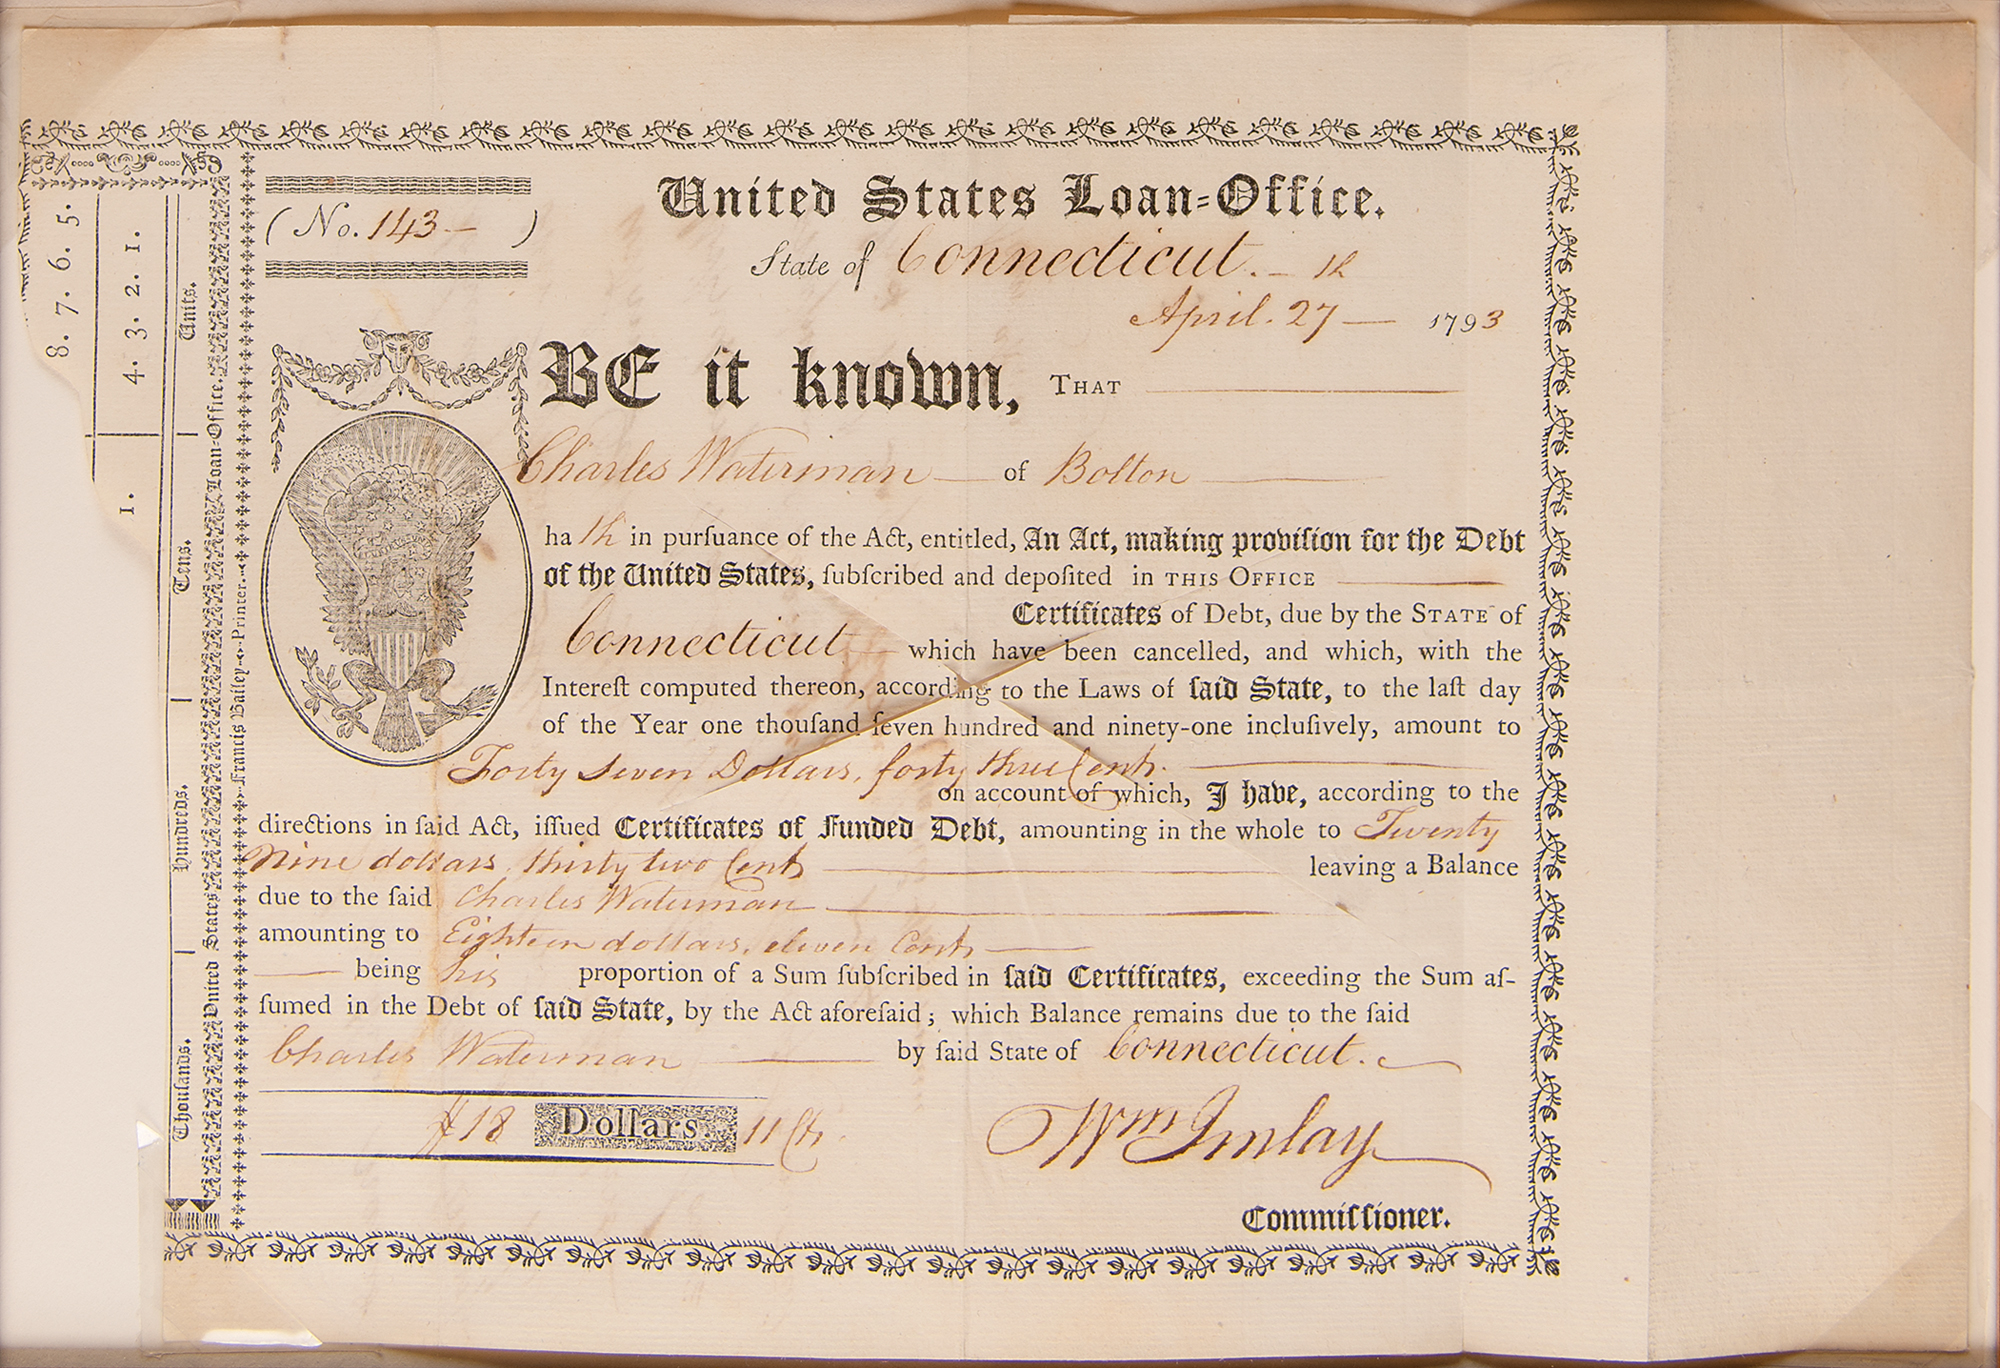 United States Loan-Office.
(No. 143 — )
State of Connecticut. —
April. 27 — 1793
BE it known, THAT
Charles Waterman — of Bolton
hath in purſuance of the Act, entitled, An Act, making proviſion for the Debt
of the United States, ſubſcribed and depoſited in THIS OFFICE
Certificates of Debt, due by the STATE of
Connecticut — which have been cancelled, and which, with the
Intereſt computed thereon, according to the Laws of ſaid State, to the laſt day
of the Year one thouſand ſeven hundred and ninety-one incluſively, amount to
Forty Seven Dollars, forty three Cents.
on account of which, I have, according to the
directions in ſaid Act, iſſued Certificates of Funded Debt, amounting in the whole to Twenty
Nine dollars, thirty two Cents — leaving a Balance
due to the ſaid Charles Waterman
amounting to Eighteen dollars, eleven Cents —
— being his proportion of a Sum ſubſcribed in ſaid Certificates, exceeding the Sum aſ-
ſumed in the Debt of ſaid State, by the Act aforeſaid; which Balance remains due to the ſaid
Charles Waterman — by ſaid State of Connecticut.
18 Dollars. 11 Cts.
Wm Imlay
Commiſſioner.
8. 7. 6. 5.
4. 3. 2. 1.
1.
Thouſands. Hundreds. Tens. Units.
United States Loan-Office. United States Loan-Office.
Francis Bailey Printer.